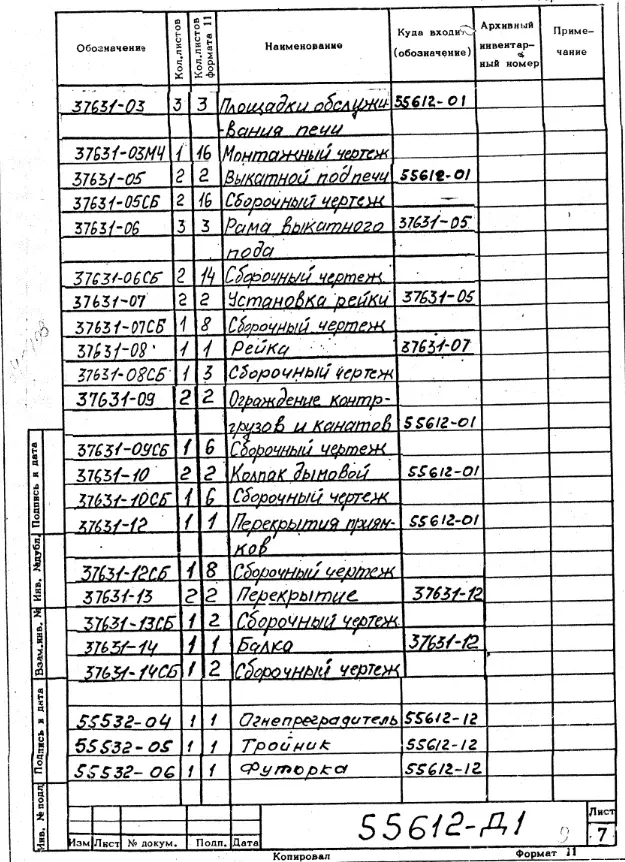 Обозначение Кол.листов Кол.листов формата 11 Наименование Куда входит (обозначение) Архивный инвентар-ный номер Приме-чание
37631-03 3 3 Площадки обслужи 55612-01
-вания печи
37631-03МЧ 1 16 Монтажный чертеж
37631-05 2 2 Выкатной под печи 55612-01
37631-05СБ 2 16 Сборочный чертеж
37631-06 3 3 Рама выкатного 37631-05
пода
37631-06СБ 2 14 Сборочный чертеж
37631-07 2 2 Установка рейки 37631-05
37631-07СБ 1 8 Сборочный чертеж
37631-08 1 1 Рейка 37631-07
37631-08СБ 1 3 Сборочный чертеж
37631-09 2 2 Ограждение контр-
грузов и канатов 55612-01
37631-09СБ 1 6 Сборочный чертеж
37631-10 2 2 Колпак дымовой 55612-01
37631-10СБ 1 6 Сборочный чертеж
37631-12 1 1 Перекрытия приям- 55612-01
ков
37631-12СБ 1 8 Сборочный чертеж
37631-13 2 2 Перекрытие 37631-12
37631-13СБ 1 2 Сборочный чертеж
37631-14 1 1 Балка 37631-12
37631-14СБ 1 2 Сборочный чертеж
55532-04 1 1 Огнепреградитель 55612-12
55532-05 1 1 Тройник 55612-12
55532-06 1 1 Футорка 55612-12
Инв. № подл Подпись и дата Взам.инв. № Инв. №дубл. Подпись и дата
Изм Лист № докум. Подп. Дата
55612-Д1
Лист
7
Копировал Формат 11